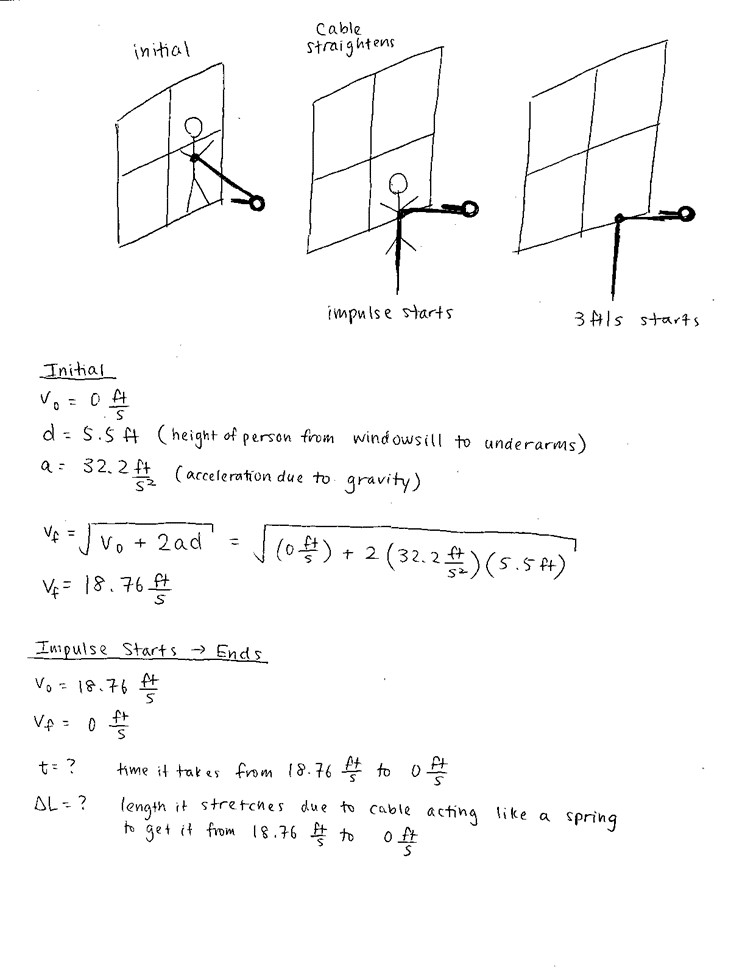 initial
Cable
straightens
impulse starts
3 ft/s starts
Initial
V₀ = 0 ft/s
d = 5.5 ft (height of person from windowsill to underarms)
a = 32.2 ft/s² (acceleration due to gravity)
V_f = √(V₀ + 2ad) = √((0 ft/s) + 2(32.2 ft/s²)(5.5 ft))
V_f = 18.76 ft/s
Impulse Starts → Ends
V₀ = 18.76 ft/s
V_f = 0 ft/s
t = ? time it takes from 18.76 ft/s to 0 ft/s
ΔL = ? length it stretches due to cable acting like a spring
to get it from 18.76 ft/s to 0 ft/s